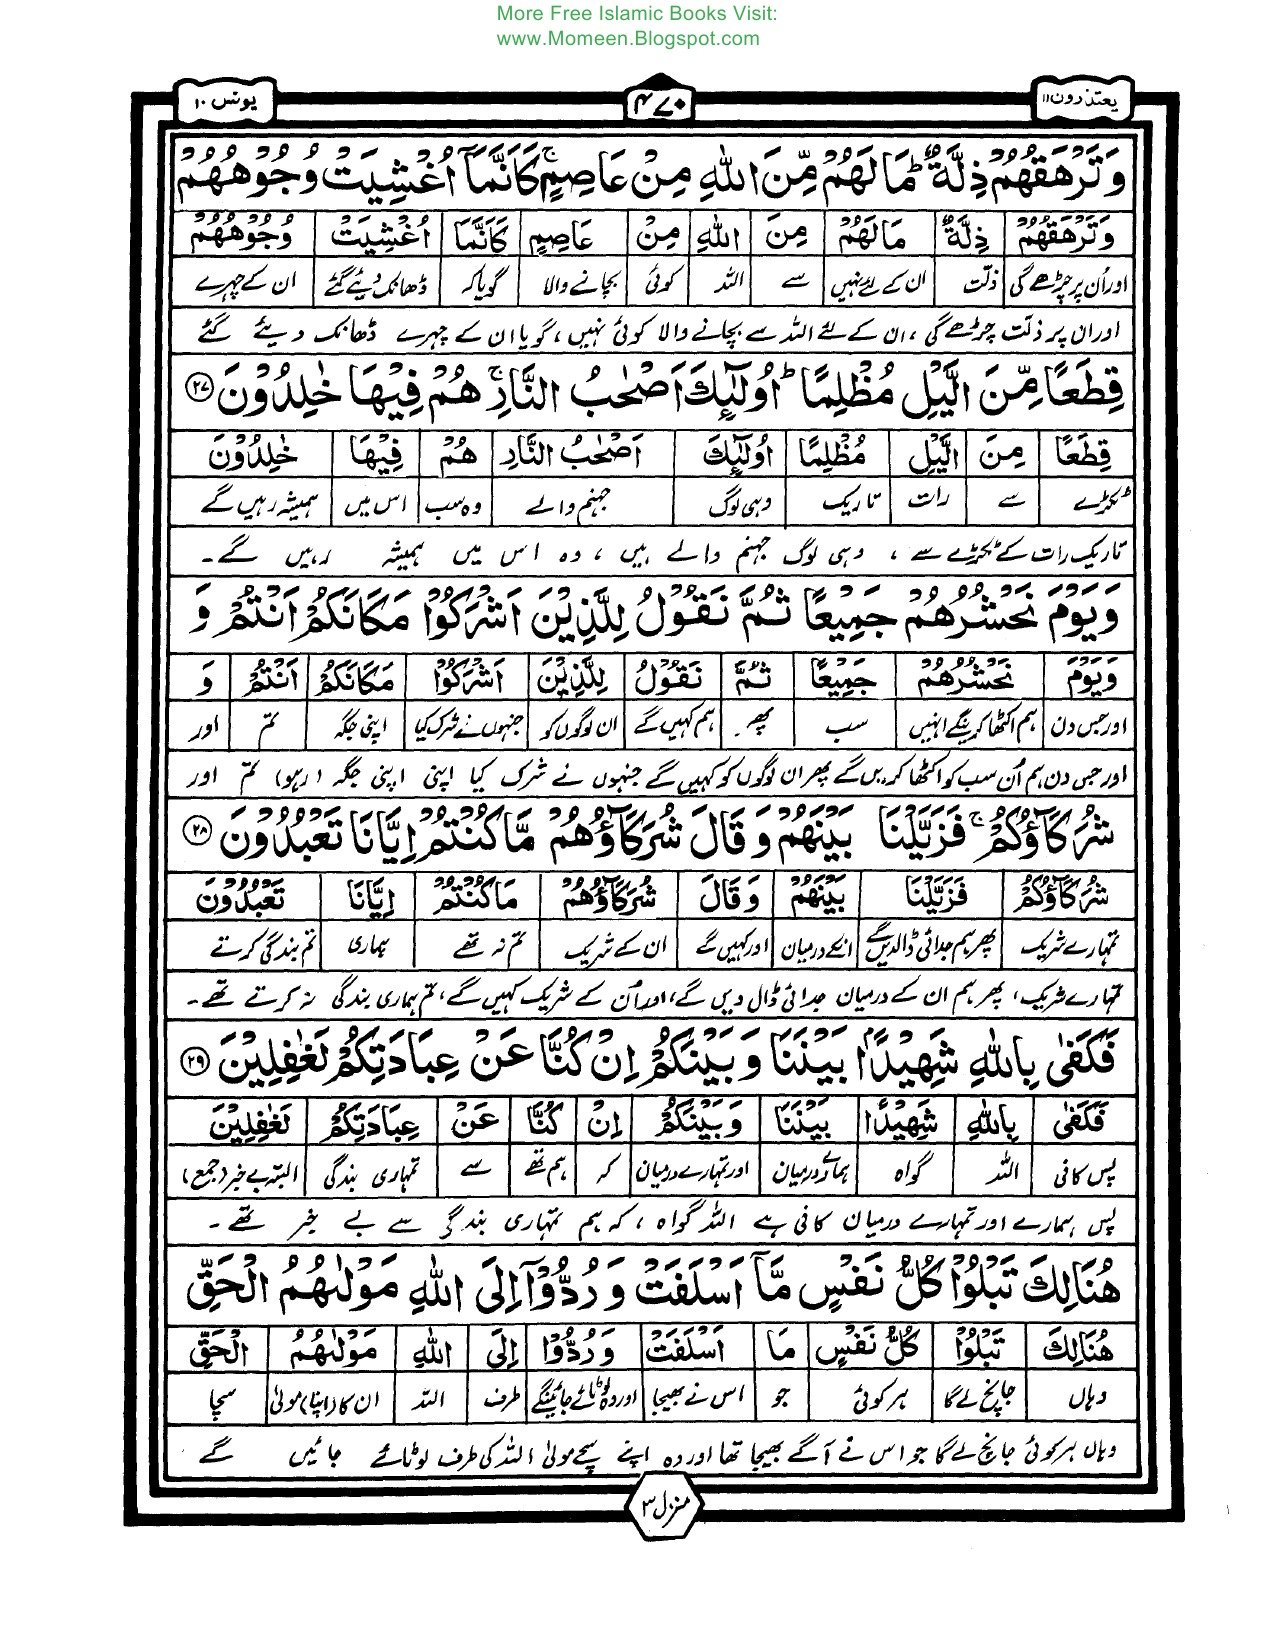 More Free Islamic Books Visit:
www.Momeen.Blogspot.com
یعتذرون ۱۱ ۴۷۰ یونس ۱۰
وَتَرْهَقُهُمْ ذِلَّةٌ ؕ مَا لَهُمْ مِّنَ اللّٰهِ مِنْ عَاصِمٍ ۚ كَاَنَّمَاۤ اُغْشِيَتْ وُجُوْهُهُمْ
وَتَرْهَقُهُمْ ذِلَّةٌ مَا لَهُمْ مِنَ اللّٰهِ مِنْ عَاصِمٍ كَاَنَّمَا اُغْشِيَتْ وُجُوْهُهُمْ
اور اُن پر چڑھے گی ذلت ان کے لئے نہیں سے اللہ کوئی بچانے والا گویا کہ ڈھانک دیئے گئے ان کے چہرے
اور ان پر ذلت چڑھے گی ، ان کے لئے اللہ سے بچانے والا کوئی نہیں ، گویا ان کے چہرے ڈھانک دیئے گئے
قِطَعًا مِّنَ الَّيْلِ مُظْلِمًا ؕ اُولٰٓئِكَ اَصْحٰبُ النَّارِ ۚ هُمْ فِيْهَا خٰلِدُوْنَ ۲۷
قِطَعًا مِنَ الَّيْلِ مُظْلِمًا اُولٰٓئِكَ اَصْحٰبُ النَّارِ هُمْ فِيْهَا خٰلِدُوْنَ
ٹکڑے سے رات تاریک وہی لوگ جہنم والے وہ سب اس میں ہمیشہ رہیں گے
تاریک رات کے ٹکڑے سے ، وہی لوگ جہنم والے ہیں ، وہ اس میں ہمیشہ رہیں گے۔
وَيَوْمَ نَحْشُرُهُمْ جَمِيْعًا ثُمَّ نَقُوْلُ لِلَّذِيْنَ اَشْرَكُوْا مَكَانَكُمْ اَنْتُمْ وَ
وَيَوْمَ نَحْشُرُهُمْ جَمِيْعًا ثُمَّ نَقُوْلُ لِلَّذِيْنَ اَشْرَكُوْا مَكَانَكُمْ اَنْتُمْ وَ
اور جس دن ہم اکٹھا کرینگے انہیں سب پھر ہم کہیں گے ان لوگوں کو جنہوں نے شرک کیا اپنی جگہ تم اور
اور جس دن ہم اُن سب کو اکٹھا کریں گے پھر ان لوگوں کو کہیں گے جنہوں نے شرک کیا اپنی اپنی جگہ (رہو) تم اور
شُرَكَآؤُكُمْ ۚ فَزَيَّلْنَا بَيْنَهُمْ وَقَالَ شُرَكَآؤُهُمْ مَّا كُنْتُمْ اِيَّانَا تَعْبُدُوْنَ ۲۸
شُرَكَآؤُكُمْ فَزَيَّلْنَا بَيْنَهُمْ وَقَالَ شُرَكَآؤُهُمْ مَا كُنْتُمْ اِيَّانَا تَعْبُدُوْنَ
تمہارے شریک پھر ہم جدائی ڈالدیں گے انکے درمیان اور کہیں گے ان کے شریک تم نہ تھے ہماری تم بندگی کرتے
تمہارے شریک، پھر ہم ان کے درمیان جدائی ڈال دیں گے، اور اُن کے شریک کہیں گے، تم ہماری بندگی نہ کرتے تھے۔
فَكَفٰى بِاللّٰهِ شَهِيْدًۢا بَيْنَنَا وَبَيْنَكُمْ اِنْ كُنَّا عَنْ عِبَادَتِكُمْ لَغٰفِلِيْنَ ۲۹
فَكَفٰى بِاللّٰهِ شَهِيْدًۢا بَيْنَنَا وَبَيْنَكُمْ اِنْ كُنَّا عَنْ عِبَادَتِكُمْ لَغٰفِلِيْنَ
پس کافی اللہ گواہ ہمارے درمیان اور تمہارے درمیان کہ ہم تھے سے تمہاری بندگی البتہ بے خبر (جمع)
پس ہمارے اور تمہارے درمیان کافی ہے اللہ گواہ ، کہ ہم تمہاری بندگی سے بے خبر تھے۔
هُنَالِكَ تَبْلُوْا كُلُّ نَفْسٍ مَّاۤ اَسْلَفَتْ وَرُدُّوْۤا اِلَى اللّٰهِ مَوْلٰىهُمُ الْحَقِّ
هُنَالِكَ تَبْلُوْا كُلُّ نَفْسٍ مَا اَسْلَفَتْ وَرُدُّوْا اِلَى اللّٰهِ مَوْلٰىهُمُ الْحَقِّ
وہاں جانچ لے گا ہر کوئی جو اس نے بھیجا اور وہ لوٹائے جائینگے طرف اللہ ان کا (اپنا) مولیٰ سچا
وہاں ہر کوئی جانچ لے گا جو اس نے آگے بھیجا تھا اور وہ اپنے سچے مولیٰ اللہ کی طرف لوٹائے جائیں گے
منزل ۳